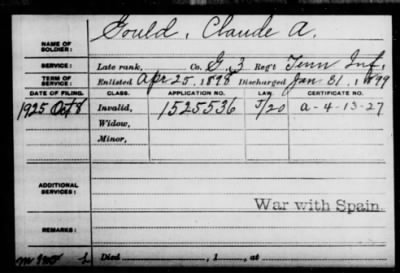 NAME OF SOLDIER: Gould, Claude A.
SERVICE: Late rank, Co. G, 3 Reg't Tenn Inf.
TERM OF SERVICE: Enlisted Apr 25, 1898 Discharged Jan 31, 1899
DATE OF FILING. CLASS. APPLICATION NO. LAW. CERTIFICATE NO.
1925 Oct 8 Invalid, 1525536 J/20 a-4-13-27
Widow,
Minor,
ADDITIONAL SERVICES:
War with Spain.
REMARKS:
Died , 1 , at